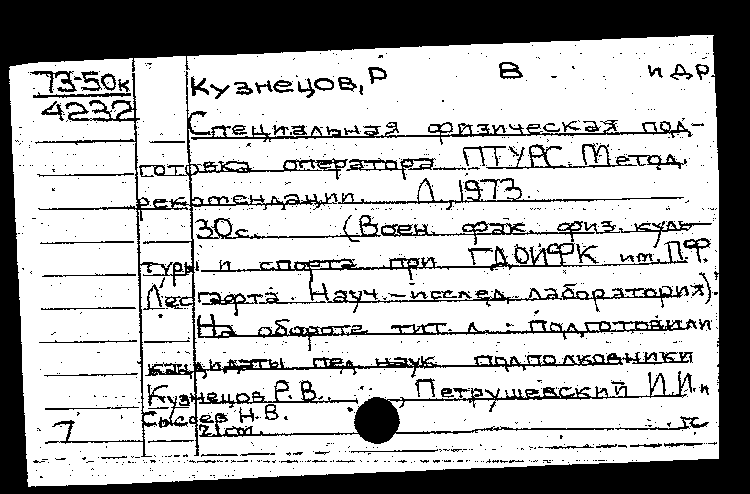 73-50к
4232
Кузнецов, Р В и др.
Специальная физическая под-
готовка оператора ПТУРС. Метод.
рекомендации. Л., 1973.
30с. (Воен. фак. физ. куль-
туры и спорта при ГДОИФК им. П.Ф.
Лесгафта. Науч.-исслед. лаборатория).
На обороте тит. л.: Подготовили
кандидаты пед. наук подполковники
Кузнецов Р.В., Петрушевский И.И. и
Сысоев Н.В.
21 см.
7